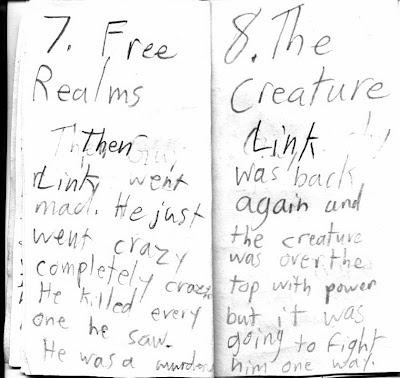 7. Free
Realms
Then
Link went
mad. He just
went crazy
completely crazy
He killed every
one he saw.
He was a
8. The
Creature
Link
was back
again and
the creature
was over the
top with power
but it was
going to fight
him one way.